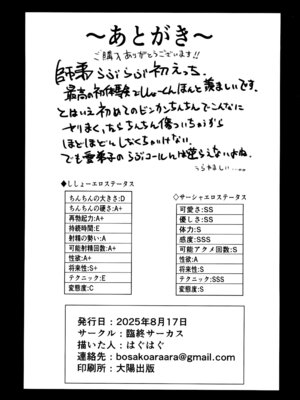 ～あとがき～
ご購入ありがとうございます!!
師弟らぶらぶ初えっち。
最高の初体験でししょーくんほんと羨ましいです。
とはいえ初めてのビンカンちんちんでこんなに
ヤりまくったらちんちん傷ついちゃうから
ほどほどにしなくちゃいけない。
でも愛弟子のらぶコールには逆らえないよね。
うらやましい……
◆ししょーエロステータス
ちんちんの大きさ:D
ちんちんの硬さ:A+
再勃起力:A+
持続時間:E
射精の勢い:A
可能射精回数:A+
性欲:A+
将来性:S+
テクニック:E
変態度:C
◇サーシャエロステータス
可愛さ:SS
優しさ:SS
体力:S
感度:SSS
可能アクメ回数:S
性欲:A
将来性:S
テクニック:SSS
変態度:S
発行日：2025年8月17日
サークル：臨終サーカス
描いた人：はぐはぐ
連絡先：bosakoaraara@gmail.com
印刷所：大陽出版